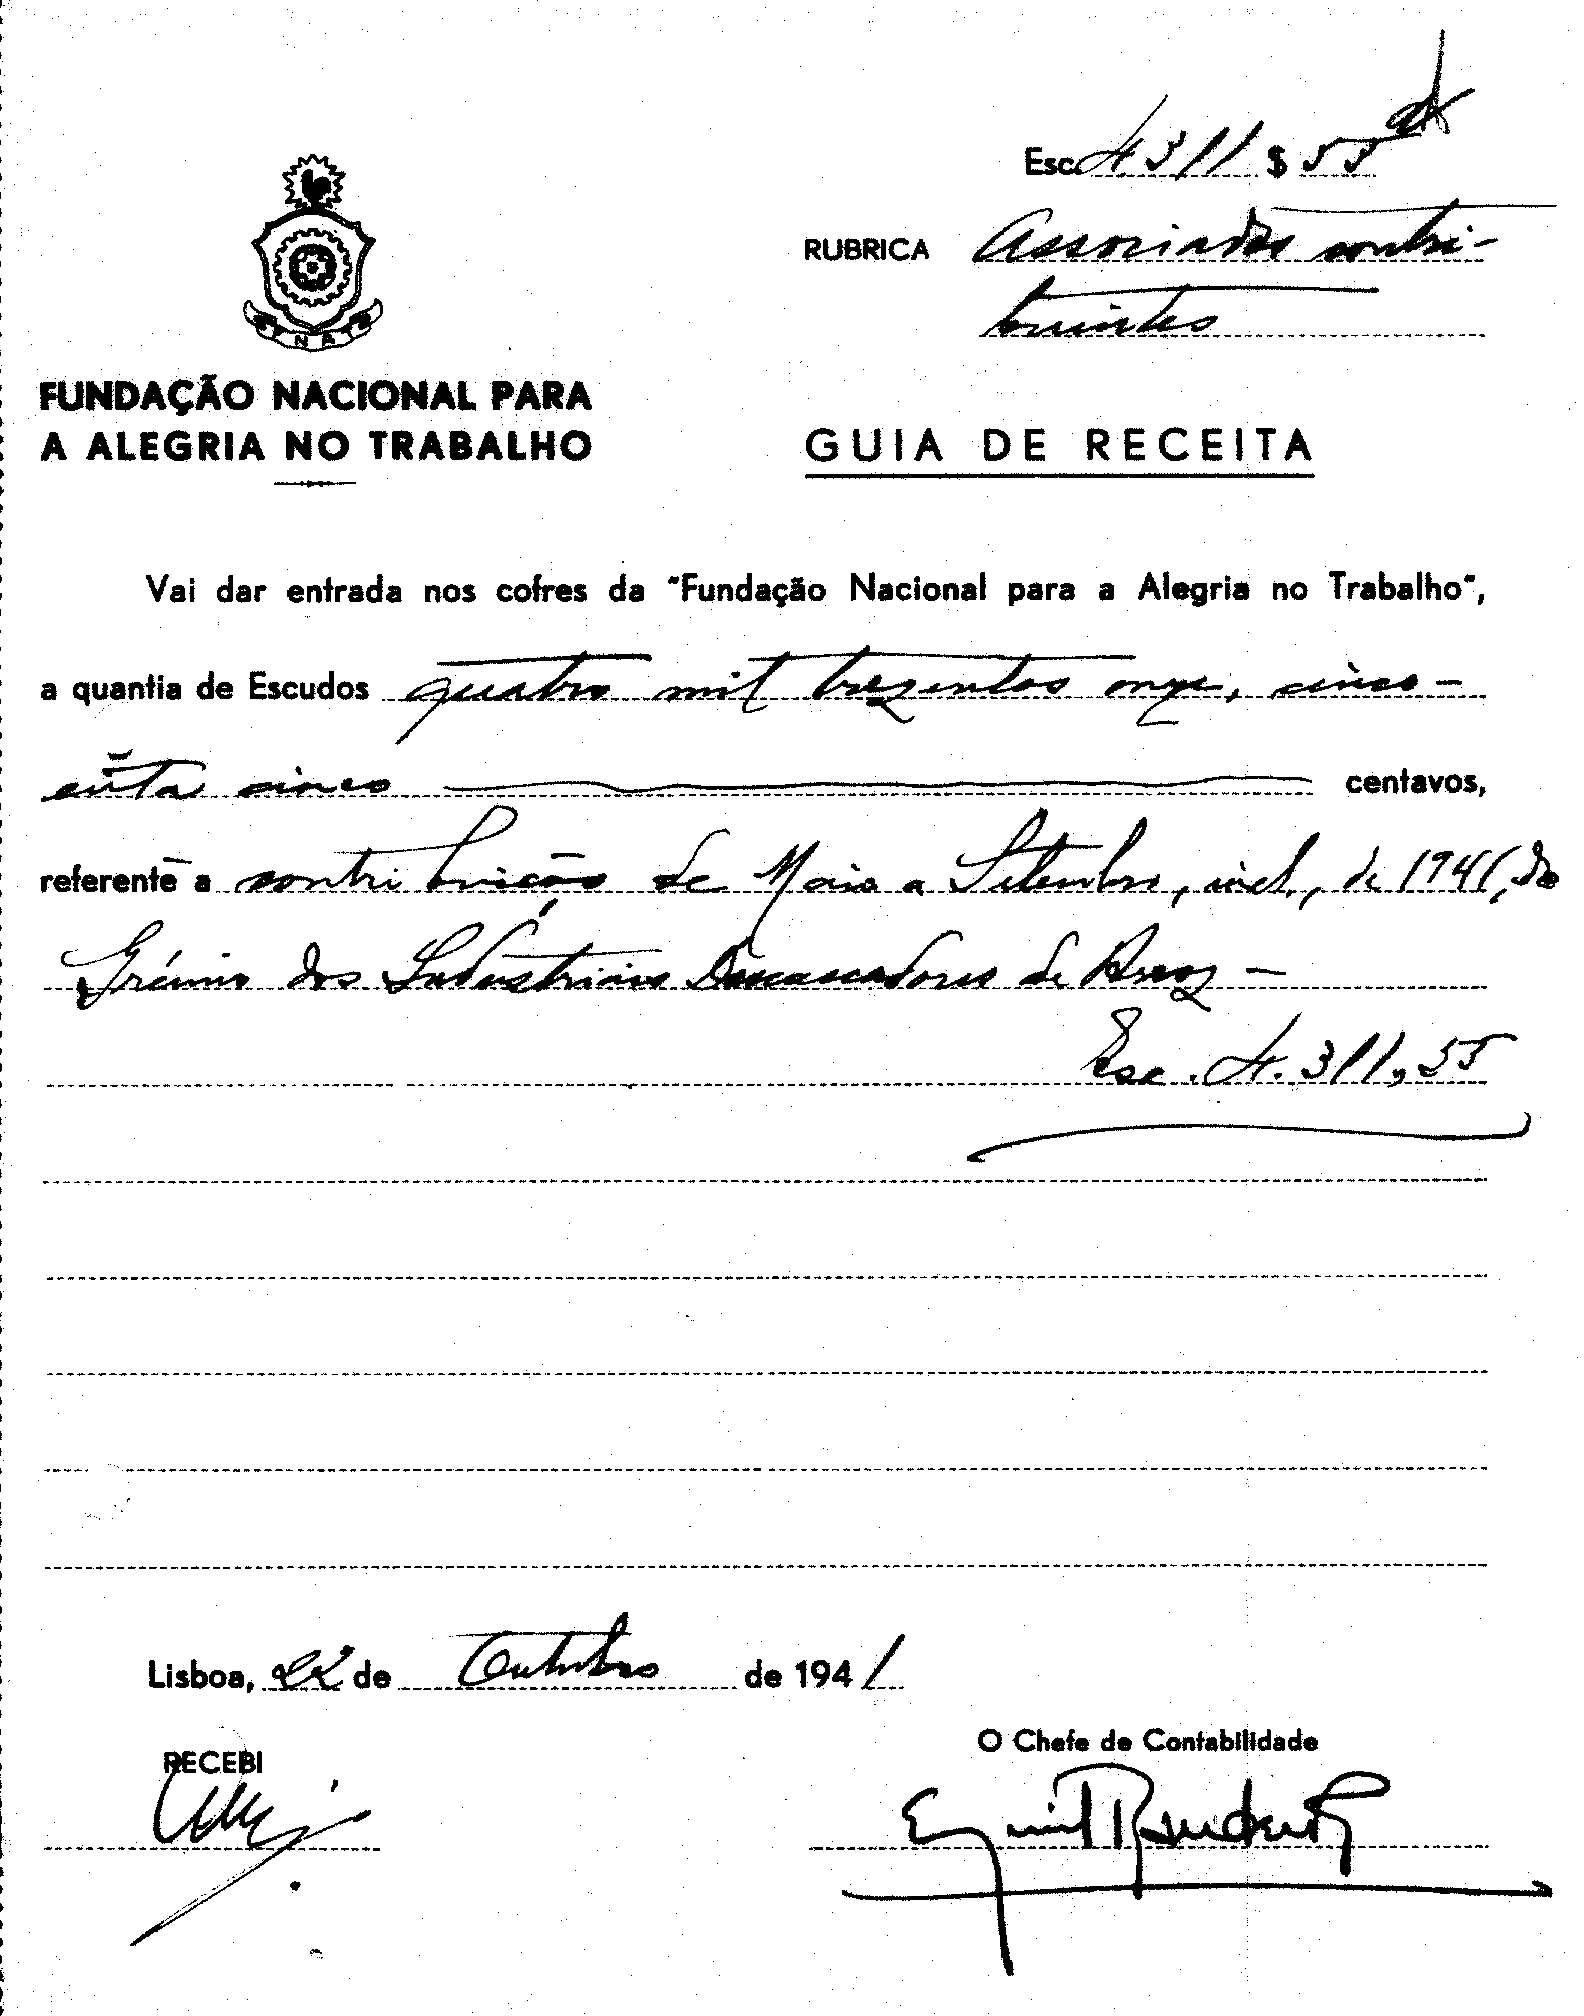 Esc. 4.311 $ 55
RUBRICA Associados contri-
buintes
N A
FUNDAÇÃO NACIONAL PARA
A ALEGRIA NO TRABALHO
GUIA DE RECEITA
Vai dar entrada nos cofres da "Fundação Nacional para a Alegria no Trabalho",
a quantia de Escudos quatro mil trezentos onze, cinco-
enta cinco centavos,
referente a contribuição de Maio a Setembro, incl., de 1941, do
Grémio dos Industriais Descascadores de Arroz —
Esc. 4.311,55
Lisboa, 22 de Outubro de 1941
RECEBI
O Chefe de Contabilidade